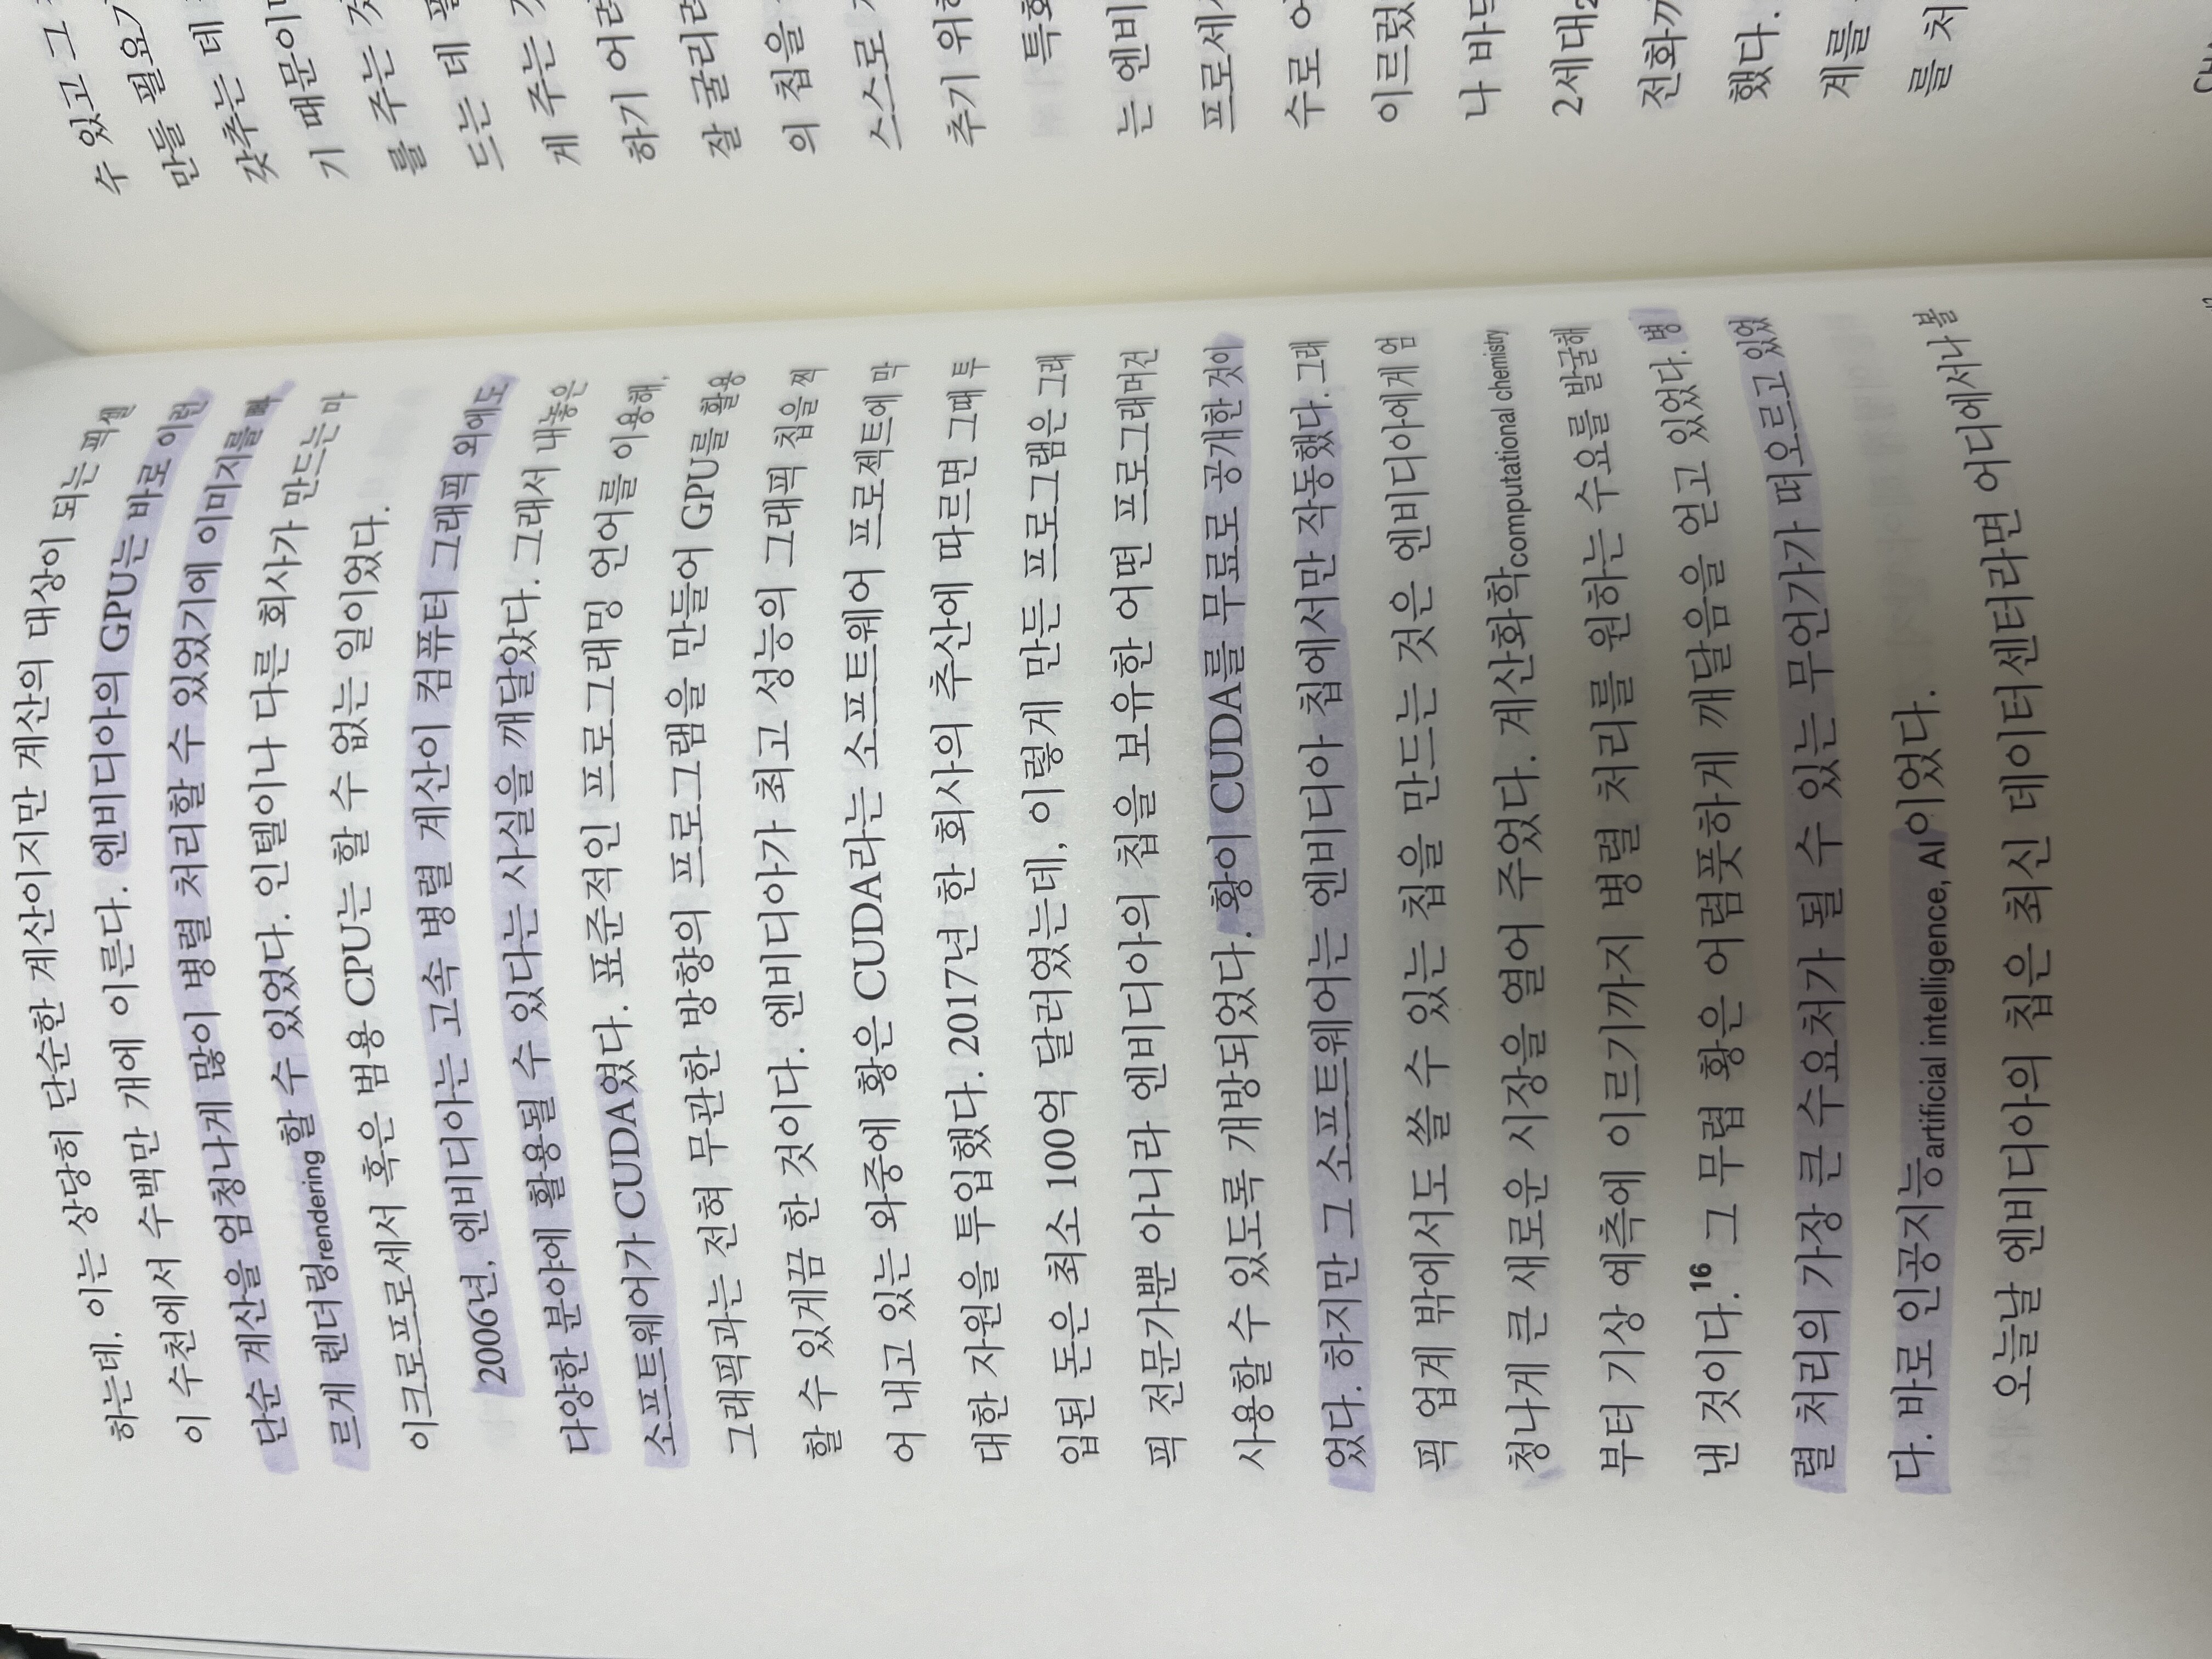 하는데, 이는 상당히 단순한 계산이지만 계산의 대상이 되는 픽셀
이 수천에서 수백만 개에 이른다. 엔비디아의 GPU는 바로 이런
단순 계산을 엄청나게 많이 병렬 처리할 수 있었기에 이미지를 빠
르게 렌더링rendering할 수 있었다. 인텔이나 다른 회사가 만드는 마
이크로프로세서 혹은 범용 CPU는 할 수 없는 일이었다.
2006년, 엔비디아는 고속 병렬 계산이 컴퓨터 그래픽 외에도
다양한 분야에 활용될 수 있다는 사실을 깨달았다. 그래서 내놓은
소프트웨어가 CUDA였다. 표준적인 프로그래밍 언어를 이용해,
그래픽과는 전혀 무관한 방향의 프로그램을 만들어 GPU를 활용
할 수 있게끔 한 것이다. 엔비디아가 최고 성능의 그래픽 칩을 찍
어 내고 있는 와중에 황은 CUDA라는 소프트웨어 프로젝트에 막
대한 자원을 투입했다. 2017년 한 회사의 추산에 따르면 그때 투
입된 돈은 최소 100억 달러였는데, 이렇게 만든 프로그램은 그래
픽 전문가뿐 아니라 엔비디아의 칩을 보유한 어떤 프로그래머건
사용할 수 있도록 개방되었다. 황이 CUDA를 무료로 공개한 것이
었다. 하지만 그 소프트웨어는 엔비디아 칩에서만 작동했다. 그래
픽 업계 밖에서도 쓸 수 있는 칩을 만드는 것은 엔비디아에게 엄
청나게 큰 새로운 시장을 열어 주었다. 계산화학computational chemistry
부터 기상 예측에 이르기까지 병렬 처리를 원하는 수요를 발굴해
낸 것이다.16 그 무렵 황은 어렴풋하게 깨달음을 얻고 있었다. 병
렬 처리의 가장 큰 수요처가 될 수 있는 무언가가 떠오르고 있었
다. 바로 인공지능artificial intelligence, AI이었다.
오늘날 엔비디아의 칩은 최신 데이터센터라면 어디에서나 볼
수 있고 그
만들 필요가
갖추는 데
기 때문이다
를 주는 것
드는 데 필
게 주는
하기 어려
잘 굴리려
의 칩을
스스로
추기 위해
특화
는 엔비
프로세
수로 어
이르렀
나 바
2세대
전화까
했다.
계를
를 처